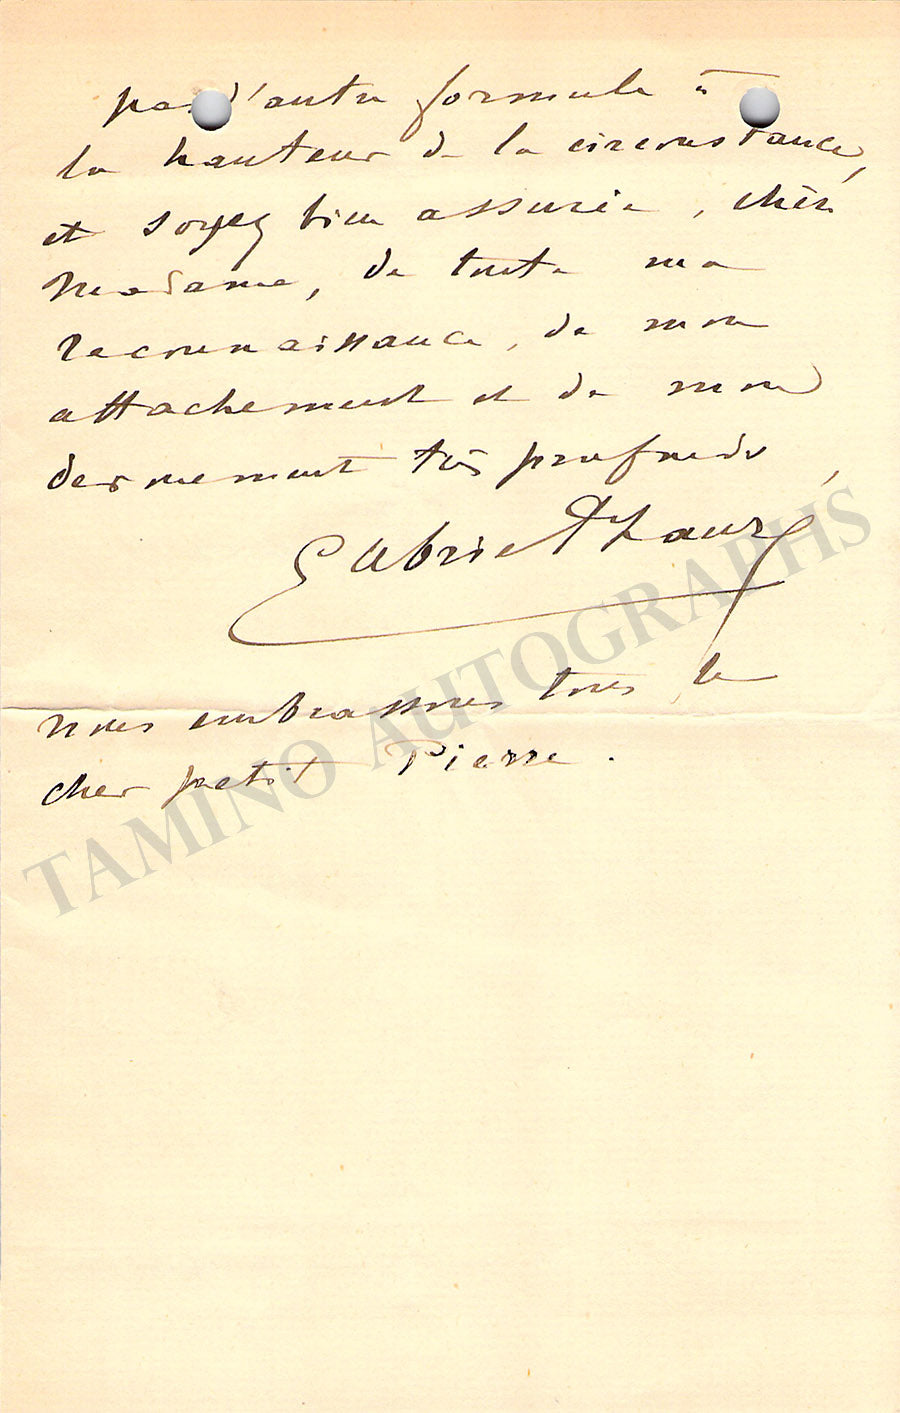 pas d'autre formule à
la hauteur de la circonstance,
et soyez bien assurée, chère
Madame, de toute ma
reconnaissance, de mon
attachement et de mon
dévouement très profonds,
Gabriel Fauré
nous embrassons tous le
cher petit Pierre.
TAMINO AUTOGRAPHS